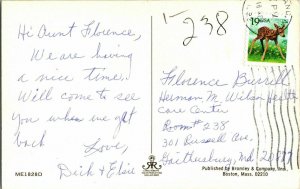 238
Hi Aunt Florence,
We are having
a nice time.
Will come to see
you when we get
back
Love,
Dick & Elsie
19 USA
Florence Bissell
Herman M. Wilson Health
Care Center
Room # 238
301 Russell Ave.
Gaithersburg, Md. 20877
ME1828O
Published by Bromley & Company, Inc.,
Boston, Mass. 02210